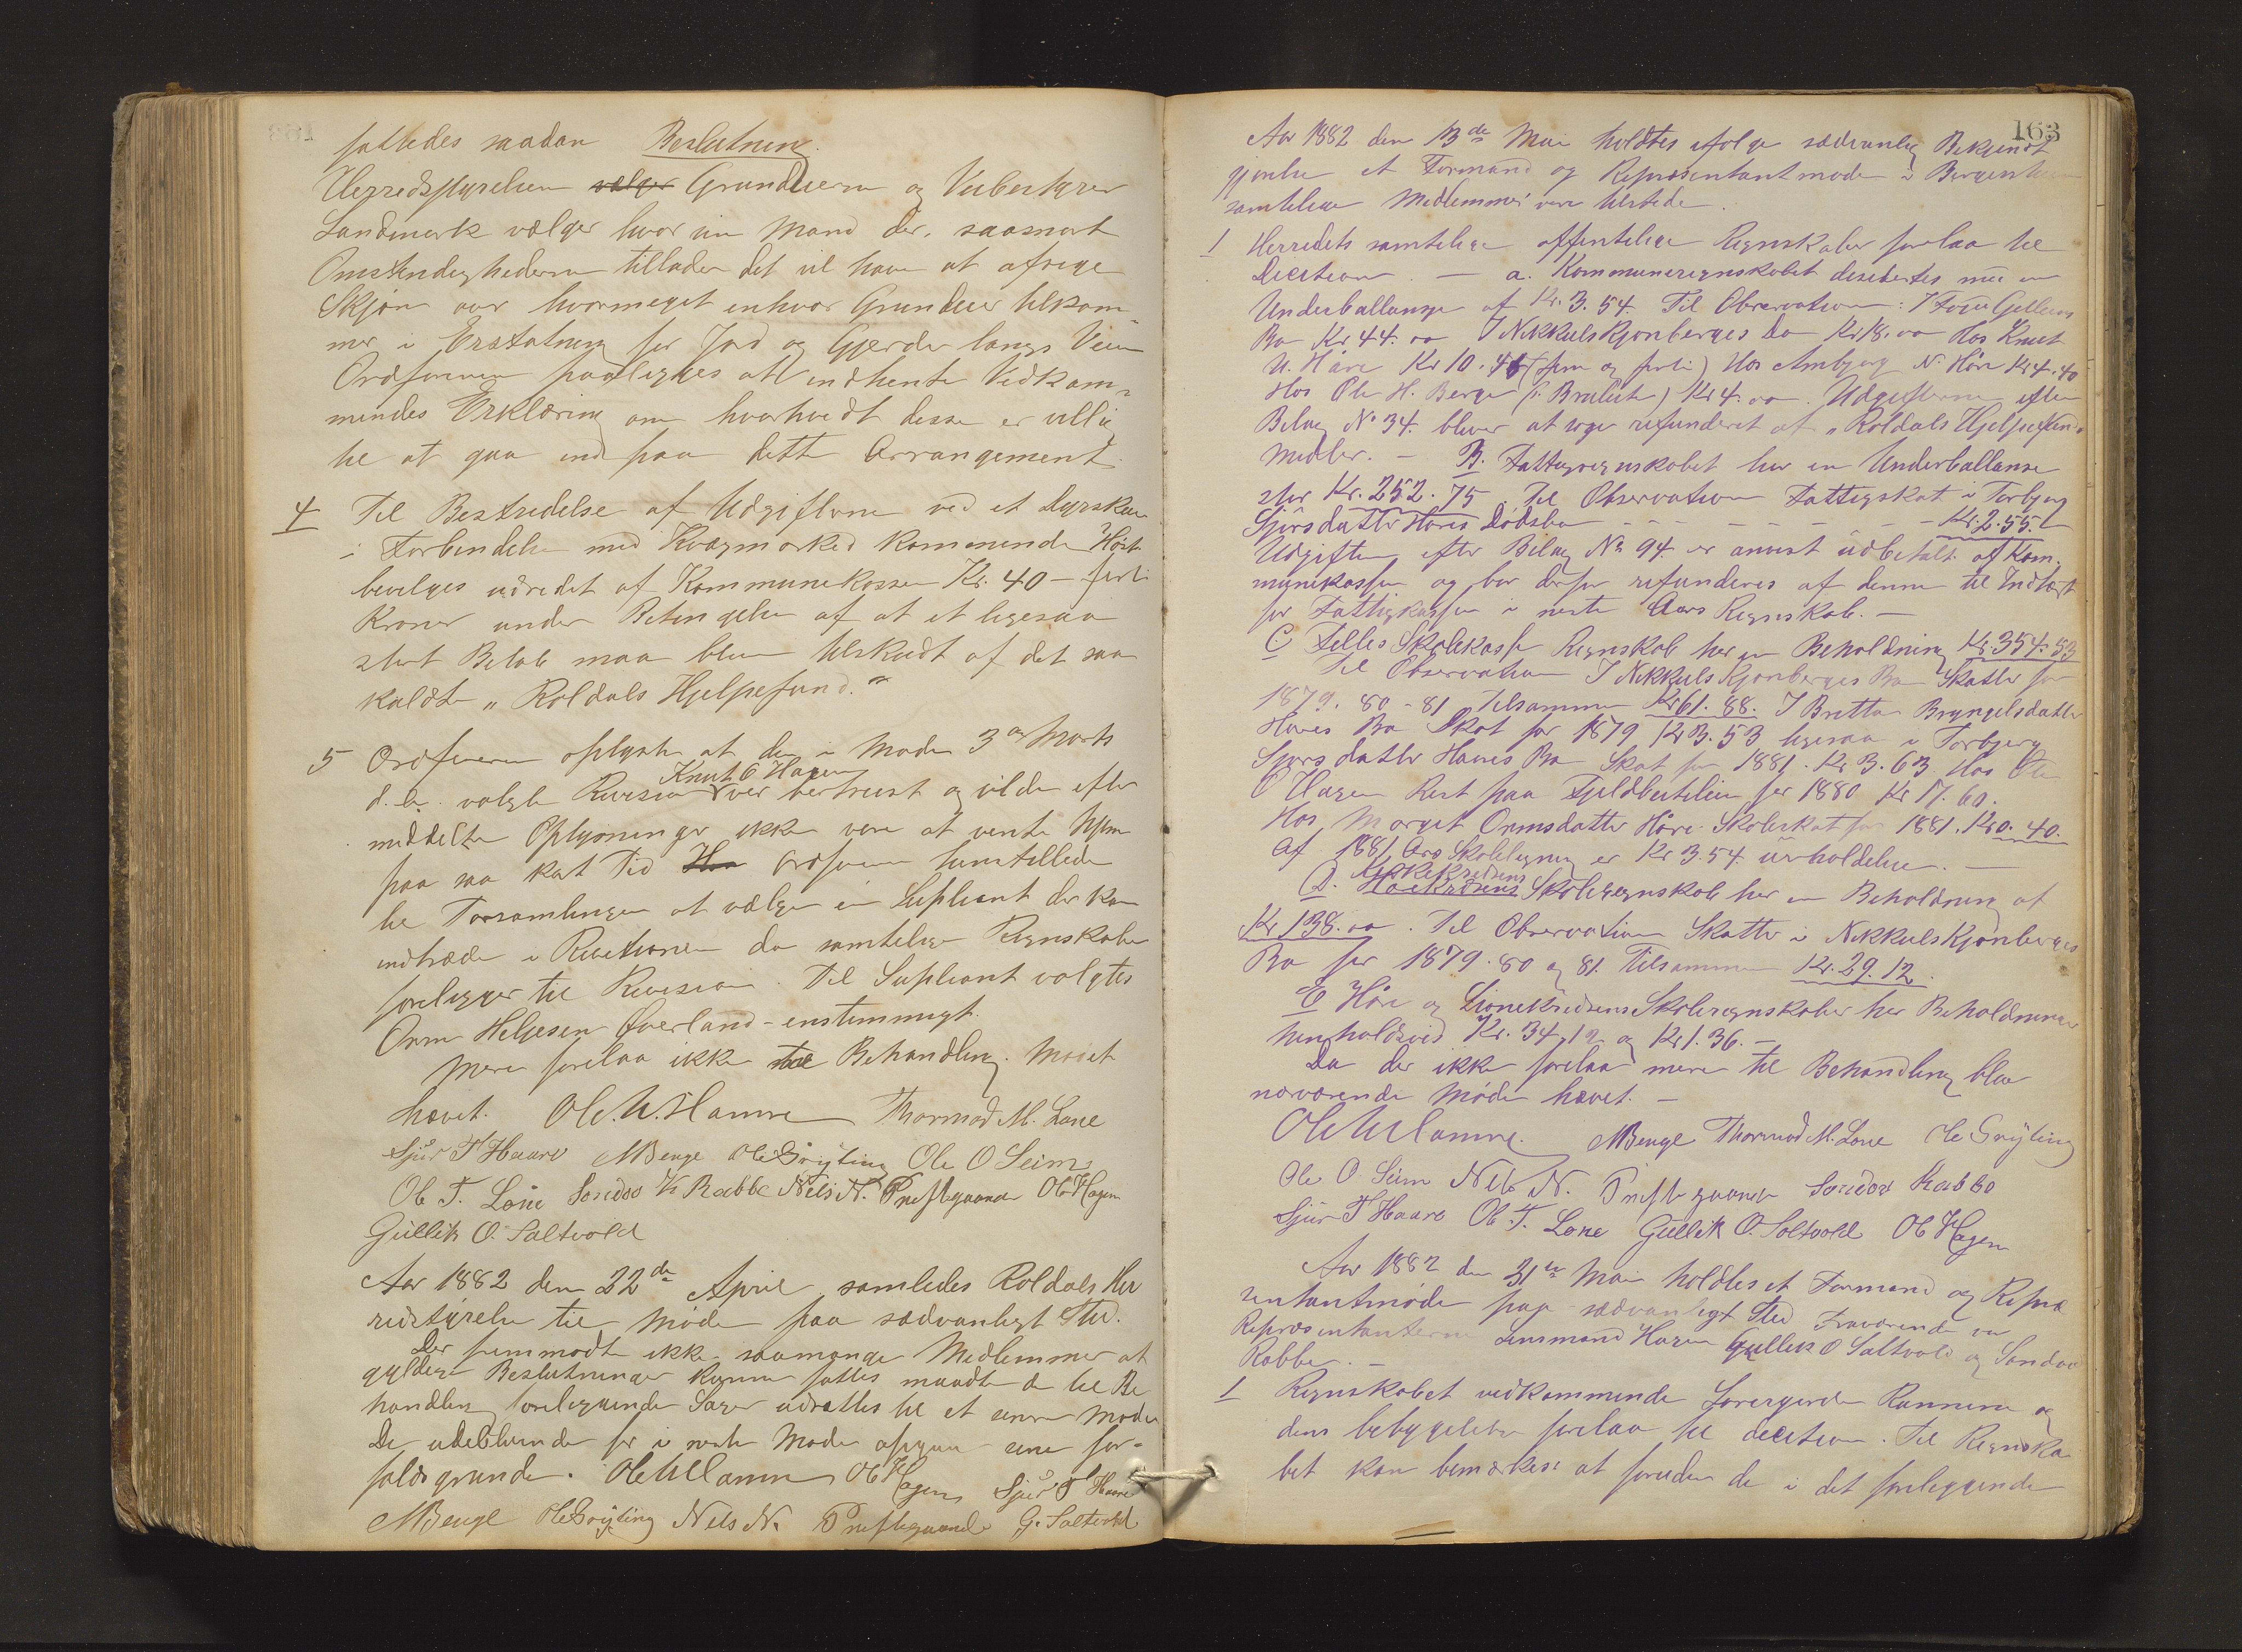 fattedes saadan Beslutning.
Herredsstyrelsen vælger Grundeierne og Veibestyrer
Landmerk vælger hver sin Mand der, saasnart
Omstendighederne tillader det vil have at afgive
Skjøn over hvormeget enhver Grundeier tilkom-
mer i Erstatning for Jord og Gjerder langs Veien
Ordføreren paalegges at indhente Vedkom-
mendes Erklæring om hvorhvidt disse er villig
til at gaa ind paa dette Arrangement.
4 Til Bestridelse af Udgifterne ved et Dyrskue
i Forbindelse med Kvægmarked kommende Høst
bevilges udredet af Kommunekassen Kr. 40 - firti
Kroner under Betingelse af at et ligesaa
stort Beløb maa blive tilskudt af det saa
kaldte "Roldals Hjelpefund."
5 Ordføreren oplyste at den i Møde 3die Marts
d. A. valgte Revisor Knut O Hagen var bortreist og vilde efter
meddelte Oplysninger ikke være at vente hjem
paa saa kort Tid Ha Ordføreren henstillede
til Forsamlingen at vælge en Supleant der kan
indtræde i Revisionen da samtelige Regnskaber
foreligger til Revision. Til Supleant valgtes
Orm Helgesen Øverland - enstemmigt.
Mere forelaa ikke til Behandling. Mødet
hævet. Ole N. Hamre Thormod M. Lone
Sjur T Haare MBerge Ole Gryting Ole O Seim
Ole T. Lone Sondov K Rabbe Nels N. Prestegaard Ol Hagen
Gullik O. Saltvold
Aar 1882 den 22de April samledes Roldals Her
redstyrelse til Møde paa sædvanligt Sted.
Der fremmødte ikke saamange Medlemmer at
gyldige Beslutninger kunne fattes maadte de til Be
handling foreliggende Sager udsættes til et senere Møde
De udeblivende før i neste Møde opgive sine for-
faldsgrunde. Ole N Hamre Ol Hagen Sjur T Haare
MBerge Ole Gryting Nels N. Prestegaard G. Saltvold
163
Aar 1882 den 13de Mai holdtes ifølge sædvanlig Bekjendt
gjørelse et Formand og Repræsentantmøde i Bergenheim
samtelige Medlemmer vare tilstede.
1 Herredets samtelige offentelige Regnskaber forelaa til
Decition. — a. Kommuneregnskabet desidertes med en
Underballanse af Kr. 3.54. Til Observation: I
Bo Kr 44.00 I Nekkuls Kjonberges Bo Kr 18.00 Hos Knut
N. Håre Kr 10.45 (fem og firti) Hos Ambjørg N. Håre Kr 4.40
Hos Ole H. Berge Kr 4.00. Udgifterne efter
Bilag No 34. bliver at søge refunderet af "Roldals Hjelpefund"
Midler. — B. Fattigregnskabet har en Underballanse
stor Kr. 252.75. Til Observation Fattigskat i Torbjørg
Sjursdatter Hares Dødsbo - - - - - - - Kr. 2.55.
Udgiften efter Bilag No 94. er anvist udbetalt af Kom-
munekassen og bør derfor refunderes af denne til Indtægt
for Fattigkassen i neste Aars Regnskab. —
C Felles Skolekasse Regnskab har en Beholdning Kr. 354.53
Til Observation I Nekkuls Kjonberges Bo Skatter for
1879. 80 - 81 Tilsammen Kr 61.88. I Britta Bryngelsdatter
Hares Bo Skat for 1879 Kr 3.53 ligesaa i Torbjørg
Sjursdatter Hares Bo Skat for 1881. Kr 3.63 Hos Ole
O Hagen Rest paa Fjeldbeiteleie for 1880 Kr 17.60.
Hos Marget Ormsdatter Håre Skoleskat for 1881. Kr 0.40.
Af 1881 Aars Skoleligning er Kr 3.54 uerholdelige. —
D. Haakredsens Kirkekredsens Skoleregnskab har en Beholdning af
Kr 138.00. Til Observation Skatter i Nekkuls Kjonberges
Bo for 1879. 80 og 81. Tilsammen Kr. 29.12.
E Håre og Lonekredsens Skoleregnskaber har Beholdninger
henholdsvis Kr. 34.12 og Kr 1.36. —
Da der ikke forelaa mere til Behandling blev
nærværende Møde hævet. —
Ole N Hamre. MBerge Thormod M. Lone Ole Gryting
Ole O. Seim Nels N. Prestegaard Sondov Rabbe
Sjur T Haare Ole T. Lone Gullik O. Saltvold Ol Hagen
Aar 1882 den 31te Mai holdtes et Formand og Repræ
sentantmøde paa sædvanligt Sted Fraværende var
Repræsentanterne Lensmand Hagen Gullik O Saltvold og Sondov
Rabbe. —
1 Regnskabet vedkommende
dens bebyggelse forelaa til decition. Til Regnska
bet kan bemærkes: at foruden de i det foreliggende